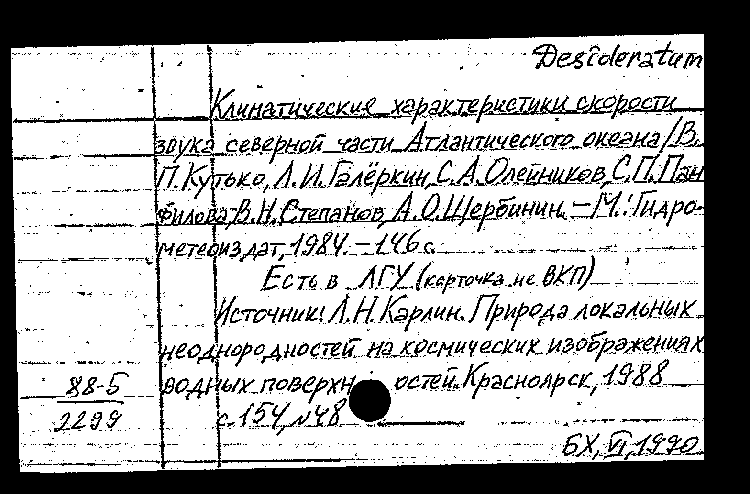 Desideratum
Климатические характеристики скорости
звука северной части Атлантического океана/В.
П.Кутько, Л.И.Галёркин, С.А.Олейников, С.П.Пан
филова, В.Н.Степанов, А.О.Щербинин. – М.: Гидро-
метеоиздат, 1984. – 146 с.
Есть в ЛГУ (карточка не ВКП)
Источник: Л.Н.Карлин. Природа локальных
неоднородностей на космических изображениях
водных поверхностей. Красноярск, 1988
с. 154, №48
88-5
2299
БХ, VI, 1990